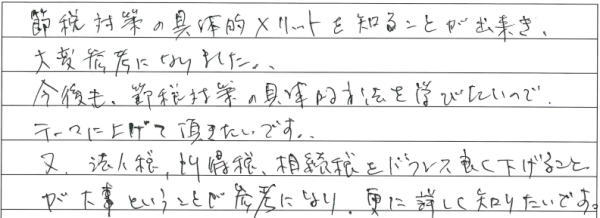 節税対策の具体的メリットを知ることが出来き、
大変参考になりました。
今後も、節税対策の具体的方法を学びたいので、
テーマに上げて頂きたいです。
又、法人税、所得税、相続税をバランス良く下げること
が大事ということで参考になり、更に詳しく知りたいです。